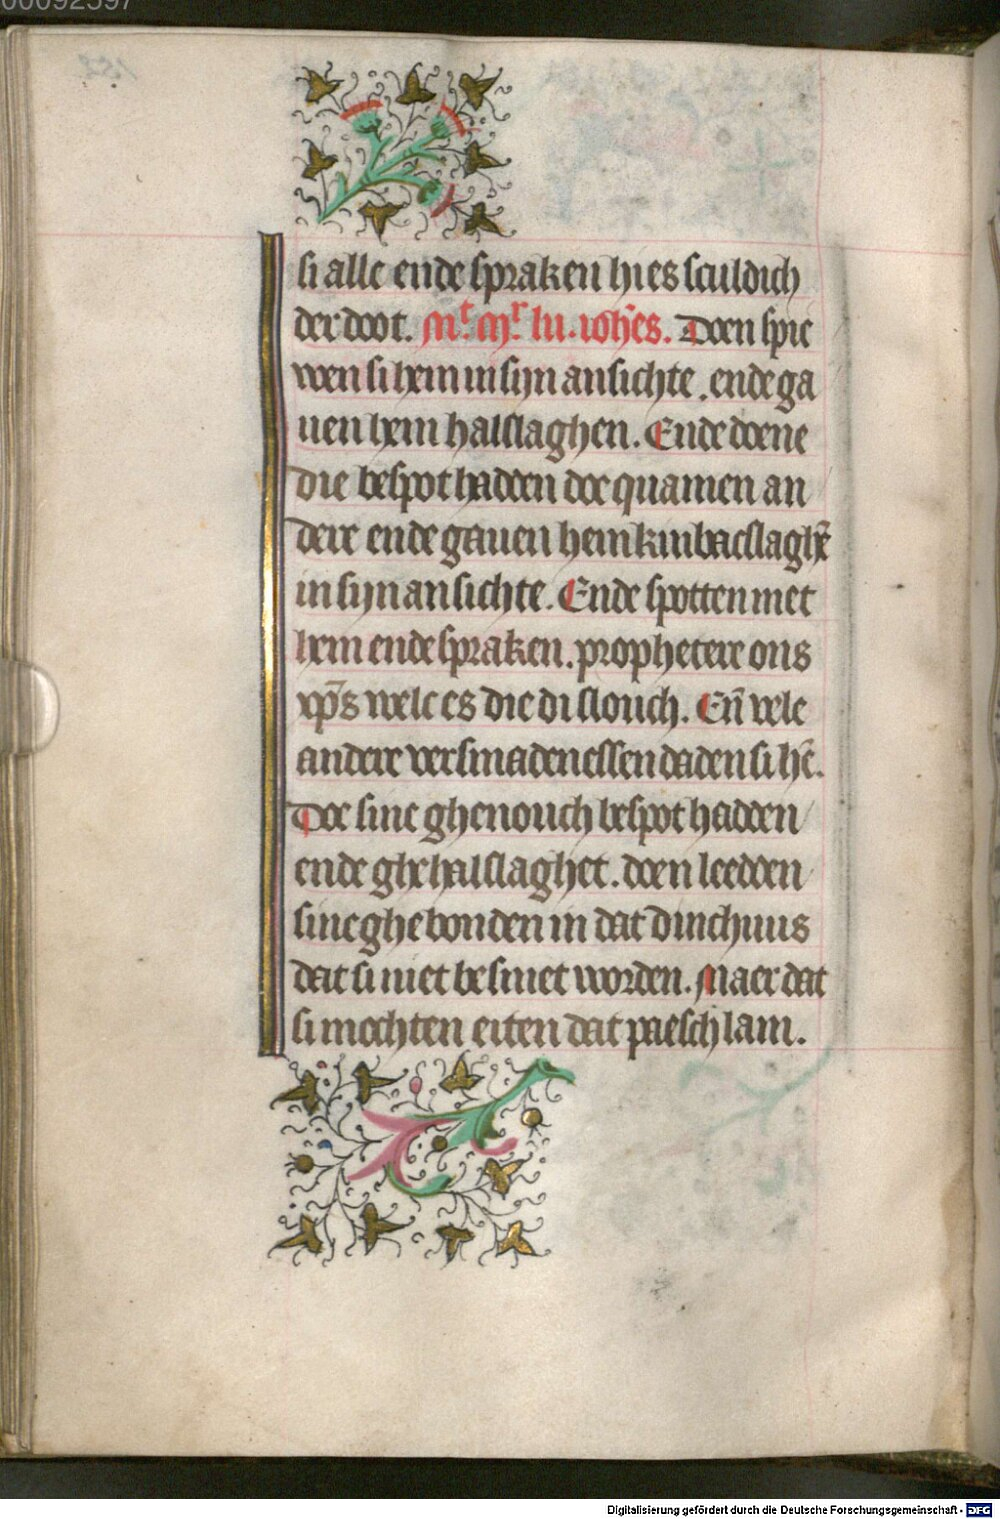 00092597
si alle ende spraken hi es sculdich
der doot. Mt. Mr. lu. ioh̄es. Doen spie
wen si hem in sijn ansichte. ende ga
uen hem halslaghen. Ende doene
die bespot hadden doe quamen an
dere ende gauen hem kinbacslaghē
in sijn ansichte. Ende spotten met
hem ende spraken. prophetere ons
xp̄s welc es die di slouch. En̄ vele
andere versmadenessen daden si hē.
Doe sine ghenouch bespot hadden
ende ghehalslaghet. doen leedden
sine ghebonden in dat dinchuus
dat si niet besmet worden. Maer dat
si mochten eiten dat paeschlam.
Digitalisierung gefördert durch die Deutsche Forschungsgemeinschaft - DFG